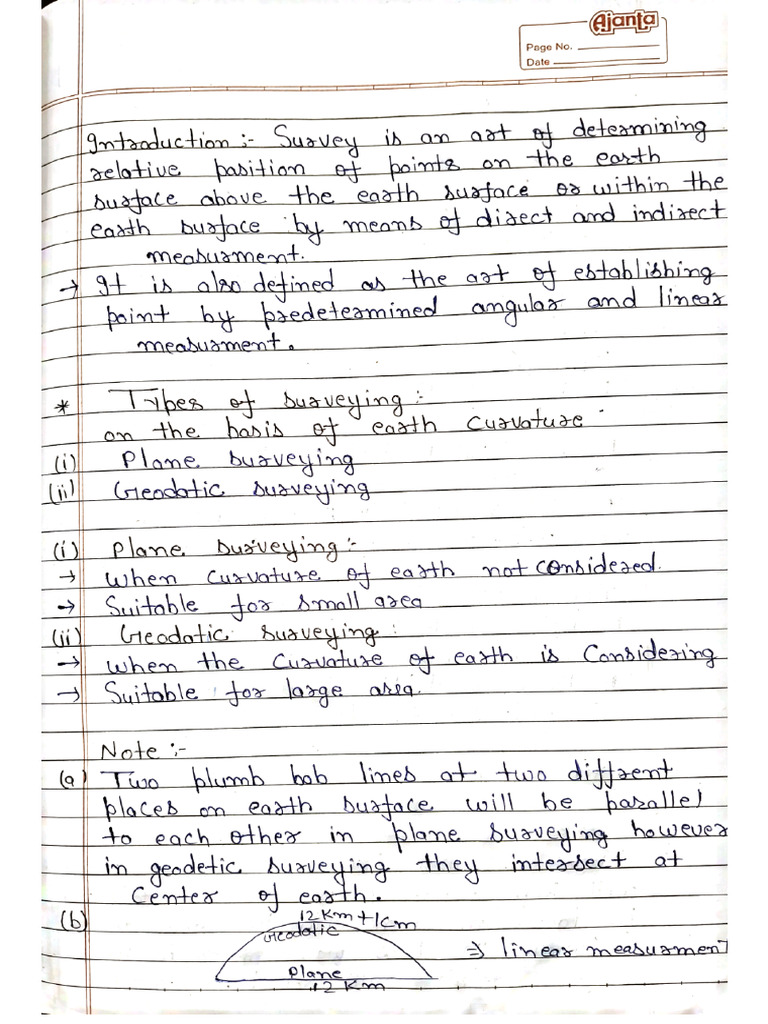 Ajanta
Page No.
Date
Introduction :- Survey is an art of determining
relative position of points on the earth
surface above the earth surface or within the
earth surface by means of direct and indirect
measurment.
→ It is also defined as the art of establishing
point by predetermined angular and linear
measurment.
* Types of surveying :-
on the basis of earth curvature -
(i) Plane surveying
(ii) Geodatic surveying
(i) Plane surveying :-
→ When curvature of earth not considered.
→ Suitable for small area
(ii) Geodatic surveying :
→ When the curvature of earth is Considering
→ Suitable for large area.
Note :-
(a) Two plumb bob lines at two diffrent
places on earth surface will be parallel
to each other in plane surveying however
in geodetic surveying they intersect at
Center of earth.
(b) 12 Km + 1cm
Geodatic
⇒ linear measurment
Plane
12 Km